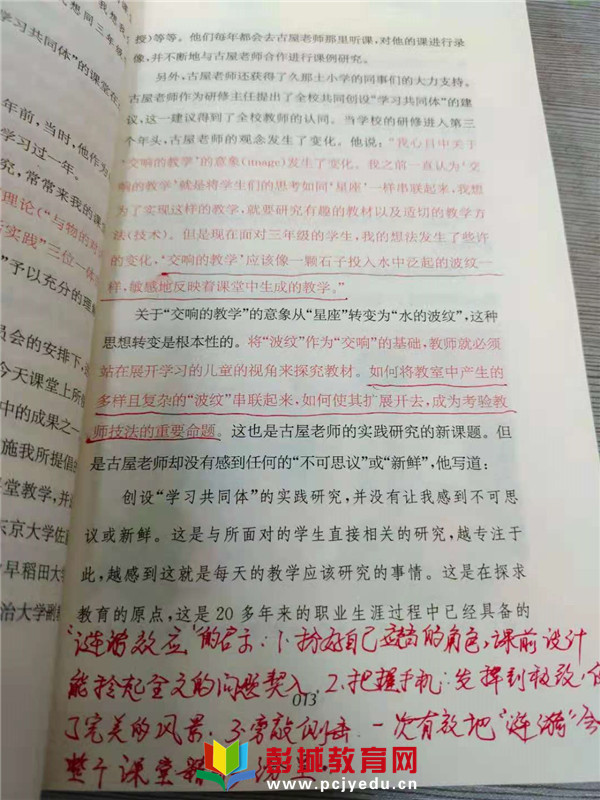 我想我
想同三年级
授)等等。他们每年都会去古屋老师那里听课,对他的课进行录
习共同体"的课堂在
像,并不断地与古屋老师合作进行课例研究。
另外,古屋老师还获得了久那土小学的同事们的大力支持。
古屋老师作为研修主任提出了全校共同创设"学习共同体"的建
年前,当时,他作为
议,这一建议得到了全校教师的认同。当学校的研修进入第三
学习过一年。
个年头,古屋老师的观念发生了变化。他说:"我心目中关于
究,常常来我的课
'交响的教学'的意象(image)发生了变化。我之前一直认为'交
响的教学'就是将学生们的思考如同'星座'一样串联起来,我想
理论("与物的对
为了实现这样的教学,就要研究有趣的教材以及适切的教学方
实践"三位一体
法(技术)。但是现在面对三年级的学生,我的想法发生了些许
"予以充分的理解
的变化,'交响的教学'应该像一颗石子投入水中泛起的波纹一
样,敏感地反映着课堂中生成的教学。"
员会的安排下,
关于"交响的教学"的意象从"星座"转变为"水的波纹",这种
今天课堂上所
思想转变是根本性的。将"波纹"作为"交响"的基础,教师就必须
中的成果之一
站在展开学习的儿童的视角来探究教材。如何将教室中产生的
施我所提倡的
多样且复杂的"波纹"串联起来,如何使其扩展开去,成为考验教
堂教学,并
师技法的重要命题。这也是古屋老师的实践研究的新课题。但
是古屋老师却没有感到任何的"不可思议"或"新鲜",他写道:
东京大学佐
创设"学习共同体"的实践研究,并没有让我感到不可思
早稻田大学
议或新鲜。这是与所面对的学生直接相关的研究,越专注于
治大学副教
此,越感到这就是每天的教学应该研究的事情。这是在探求
教育的原点,这是 20 多年来的职业生涯过程中已经具备的
"涟漪效应"的启示:1、扮好自己应当的角色,课前设计
能拎起全文的问题契入,2、把握手机:发挥到极致,
013
了完美的风景。3、旁敲侧击,一次有效地"涟漪"会
整个课堂
彭城教育网
www.pcjyedu.com